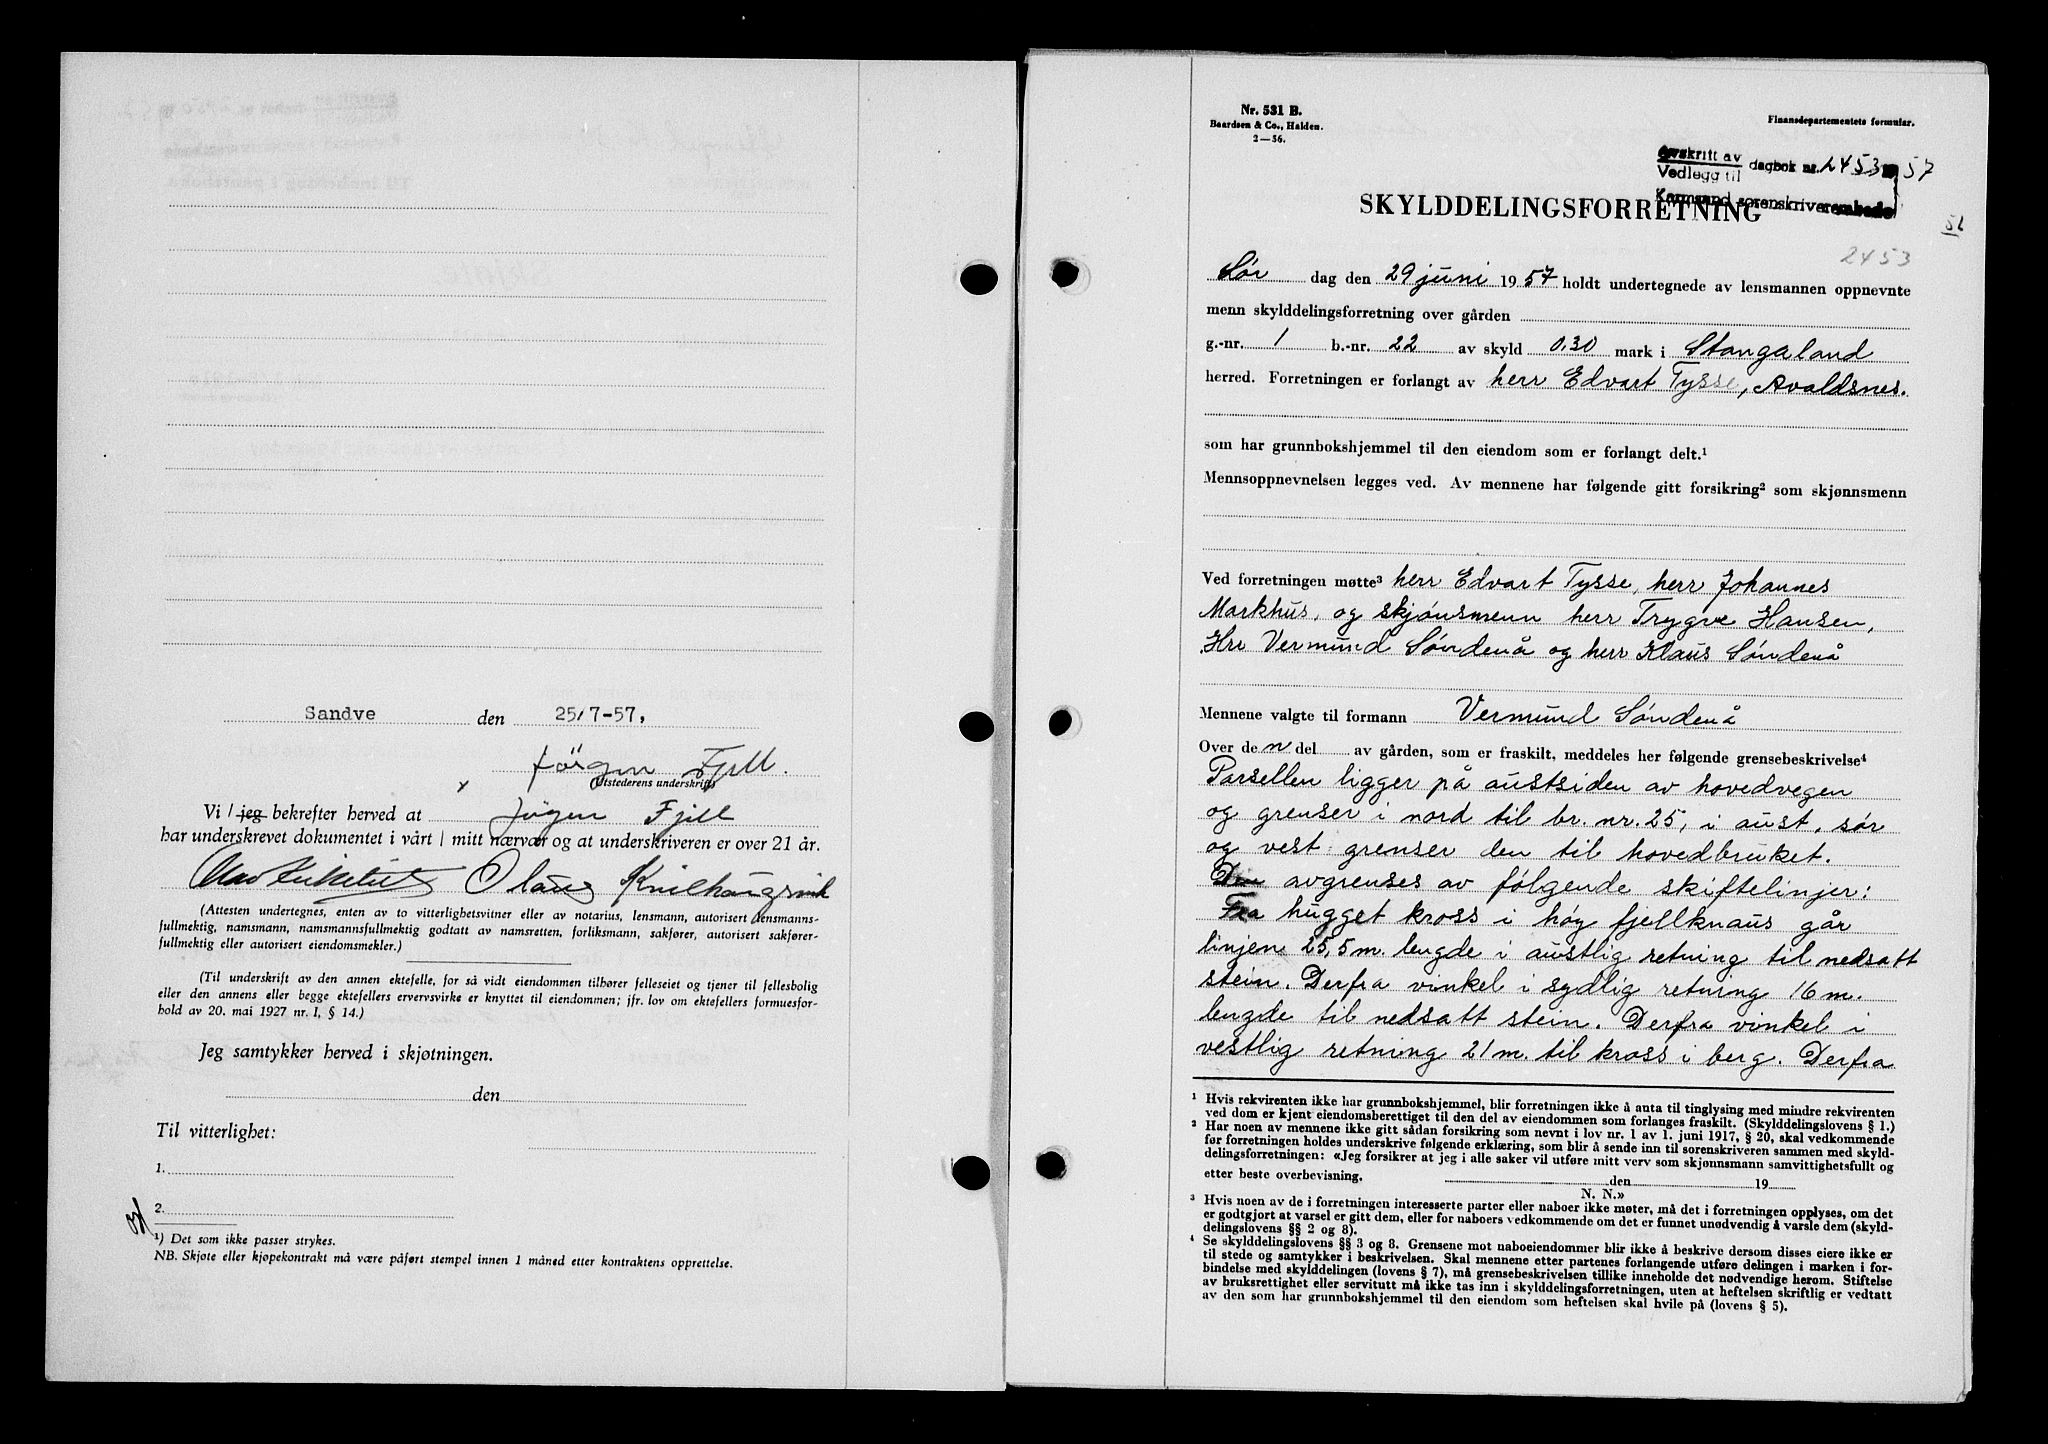 Sandve den 25/7-57,
Jörgen Fjell.
(Utstederens underskrift)
Vi / jeg bekrefter herved at Jörgen Fjell
har underskrevet dokumentet i vårt / mitt nærvær og at underskriveren er over 21 år.
Olaus
(Attesten undertegnes, enten av to vitterlighetsvitner eller av notarius, lensmann, autorisert lensmanns-
fullmektig, namsmann, namsmannsfullmektig godtatt av namsretten, forliksmann, sakfører, autorisert sakfører-
fullmektig eller autorisert eiendomsmekler.)
(Til underskrift av den annen ektefelle, for så vidt eiendommen tilhører felleseiet og tjener til fellesbolig
eller den annens eller begge ektefellers ervervsvirke er knyttet til eiendommen; jfr. lov om ektefellers formuesfor-
hold av 20. mai 1927 nr. 1, § 14.)
Jeg samtykker herved i skjøtningen.
den
Til vitterlighet:
1.
2.
¹) Det som ikke passer strykes.
NB. Skjøte eller kjøpekontrakt må være påført stempel innen 1 måned etter kontraktens opprettelse.
Nr. 531 B.
Baardsen & Co., Halden.
2—56.
Finansdepartementets formular.
Avskrift av
Vedlegg til dagbok nr. 2453 19 57
Karmsund sorenskriverembede
SKYLDDELINGSFORRETNING
51
2453
Lör dag den 29 juni 1957 holdt undertegnede av lensmannen oppnevnte
menn skylddelingsforretning over gården
g.-nr. 1 b.-nr. 22 av skyld 0,30 mark i Stangaland
herred. Forretningen er forlangt av herr Edvart Tysse, Avaldsnes.
som har grunnbokshjemmel til den eiendom som er forlangt delt.¹
Mennsoppnevnelsen legges ved. Av mennene har følgende gitt forsikring² som skjønnsmenn
Ved forretningen møtte³ herr Edvart Tysse, herr Johannes
Markhus, og skjönsmenn herr Trygve Hansen,
Hrr Vermund Söndenå og herr Klaus Söndenå
Mennene valgte til formann Vermund Söndenå
Over de n del av gården, som er fraskilt, meddeles her følgende grensebeskrivelse⁴
Parsellen ligger på austsiden av hovedvegen
og grenser i nord til br. nr. 25, i aust, sör
og vest grenser den til hovedbruket.
Den avgrenses av fölgende skiftelinjer:
Fra hugget kross i höy fjellknaus går
linjen 25,5 m. lengde i austlig retning til nedsatt
stein. Derfra vinkel i sydlig retning 16 m.
lengde til nedsatt stein. Derfra vinkel i
vestlig retning 21 m. til kross i berg. Derfra
¹ Hvis rekvirenten ikke har grunnbokshjemmel, blir forretningen ikke å anta til tinglysing med mindre rekvirenten
ved dom er kjent eiendomsberettiget til den del av eiendommen som forlanges fraskilt. (Skylddelingslovens § 1.)
² Har noen av mennene ikke gitt sådan forsikring som nevnt i lov nr. 1 av 1. juni 1917, § 20, skal vedkommende
før forretningen holdes underskrive følgende erklæring, som blir å sende inn til sorenskriveren sammen med skyld-
delingsforretningen: «Jeg forsikrer at jeg i alle saker vil utføre mitt verv som skjønnsmann samvittighetsfullt og
etter beste overbevisning. den 19
N. N.»
³ Hvis noen av de i forretningen interesserte parter eller naboer ikke møter, må det i forretningen opplyses, om det
er godtgjort at varsel er gitt dem, eller for naboers vedkommende om det er funnet unødvendig å varsle dem (skyld-
delingslovens §§ 2 og 8).
⁴ Se skylddelingslovens §§ 3 og 8. Grensene mot naboeiendommer blir ikke å beskrive dersom disses eiere ikke er
til stede og samtykker i beskrivelsen. Skal mennene etter partenes forlangende utføre delingen i marken i for-
bindelse med skylddelingen (lovens § 7), må grensebeskrivelsen tillike inneholde det nødvendige herom. Stiftelse
av bruksrettighet eller servitutt må ikke tas inn i skylddelingsforretningen, uten at heftelsen skriftlig er vedtatt
av den som har grunnbokshjemmel til den eiendom som heftelsen skal hvile på (lovens § 5).